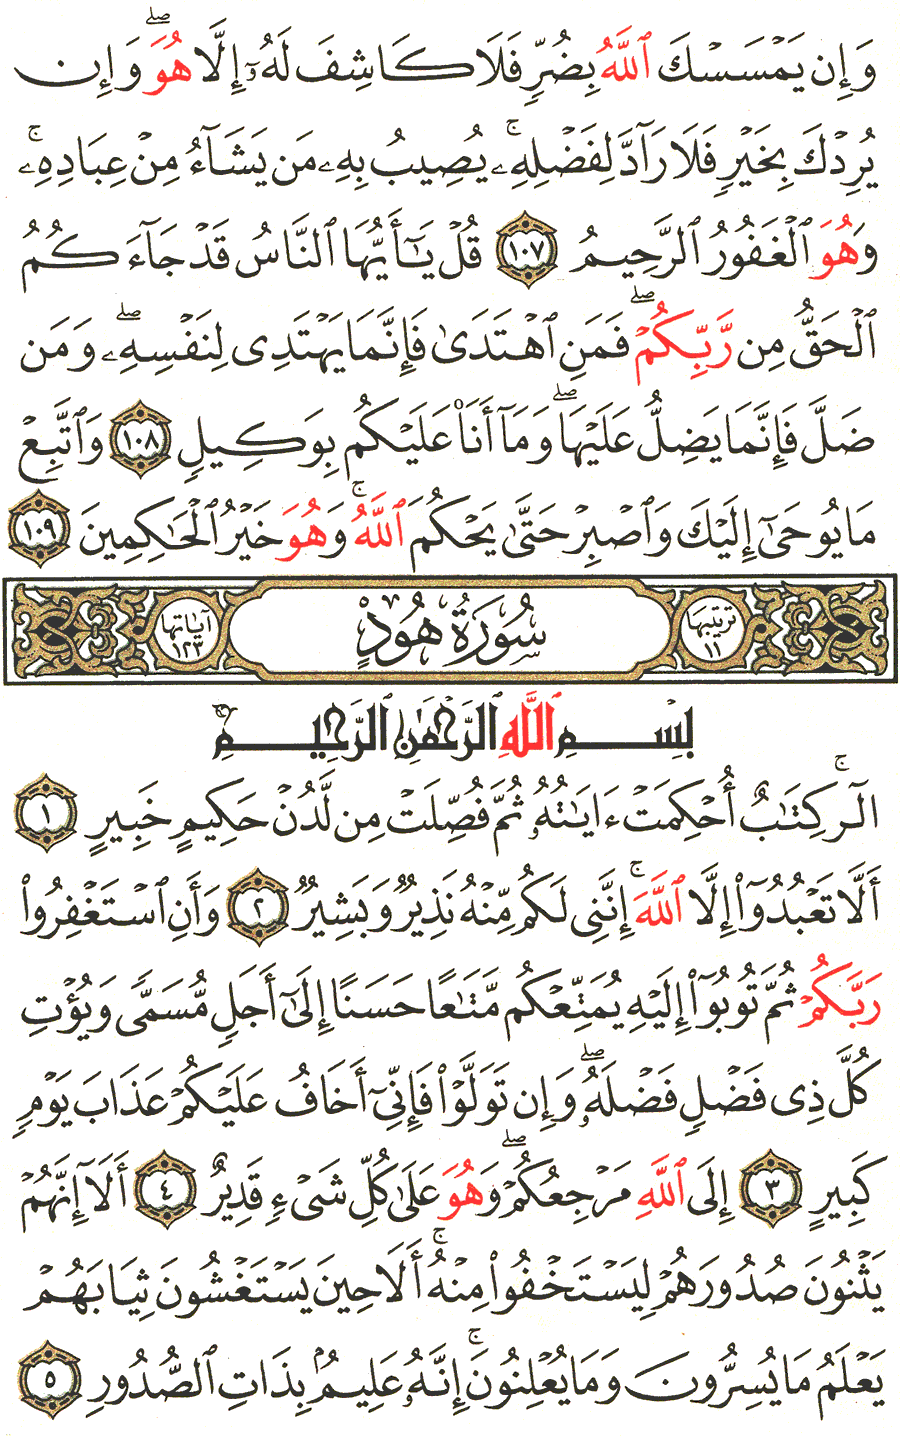 وَإِن يَمْسَسْكَ ٱللَّهُ بِضُرٍّ فَلَا كَاشِفَ لَهُۥٓ إِلَّا هُوَ ۖ وَإِن
يُرِدْكَ بِخَيْرٍ فَلَا رَآدَّ لِفَضْلِهِۦ ۚ يُصِيبُ بِهِۦ مَن يَشَآءُ مِنْ عِبَادِهِۦ ۚ
وَهُوَ ٱلْغَفُورُ ٱلرَّحِيمُ ١٠٧ قُلْ يَـٰٓأَيُّهَا ٱلنَّاسُ قَدْ جَآءَكُمُ
ٱلْحَقُّ مِن رَّبِّكُمْ ۖ فَمَنِ ٱهْتَدَىٰ فَإِنَّمَا يَهْتَدِى لِنَفْسِهِۦ ۖ وَمَن
ضَلَّ فَإِنَّمَا يَضِلُّ عَلَيْهَا ۖ وَمَآ أَنَا۠ عَلَيْكُم بِوَكِيلٍ ١٠٨ وَٱتَّبِعْ
مَا يُوحَىٰٓ إِلَيْكَ وَٱصْبِرْ حَتَّىٰ يَحْكُمَ ٱللَّهُ ۚ وَهُوَ خَيْرُ ٱلْحَـٰكِمِينَ ١٠٩
ترتيبها ١١ سُورَةُ هُودٍ آياتها ١٢٣
بِسْمِ ٱللَّهِ ٱلرَّحْمَـٰنِ ٱلرَّحِيمِ
الٓر ۚ كِتَـٰبٌ أُحْكِمَتْ ءَايَـٰتُهُۥ ثُمَّ فُصِّلَتْ مِن لَّدُنْ حَكِيمٍ خَبِيرٍ ١
أَلَّا تَعْبُدُوٓا۟ إِلَّا ٱللَّهَ ۚ إِنَّنِى لَكُم مِّنْهُ نَذِيرٌ وَبَشِيرٌ ٢ وَأَنِ ٱسْتَغْفِرُوا۟
رَبَّكُمْ ثُمَّ تُوبُوٓا۟ إِلَيْهِ يُمَتِّعْكُم مَّتَـٰعًا حَسَنًا إِلَىٰٓ أَجَلٍ مُّسَمًّى وَيُؤْتِ
كُلَّ ذِى فَضْلٍ فَضْلَهُۥ ۖ وَإِن تَوَلَّوْا۟ فَإِنِّىٓ أَخَافُ عَلَيْكُمْ عَذَابَ يَوْمٍ
كَبِيرٍ ٣ إِلَى ٱللَّهِ مَرْجِعُكُمْ ۖ وَهُوَ عَلَىٰ كُلِّ شَىْءٍ قَدِيرٌ ٤ أَلَآ إِنَّهُمْ
يَثْنُونَ صُدُورَهُمْ لِيَسْتَخْفُوا۟ مِنْهُ ۚ أَلَا حِينَ يَسْتَغْشُونَ ثِيَابَهُمْ
يَعْلَمُ مَا يُسِرُّونَ وَمَا يُعْلِنُونَ ۚ إِنَّهُۥ عَلِيمٌۢ بِذَاتِ ٱلصُّدُورِ ٥